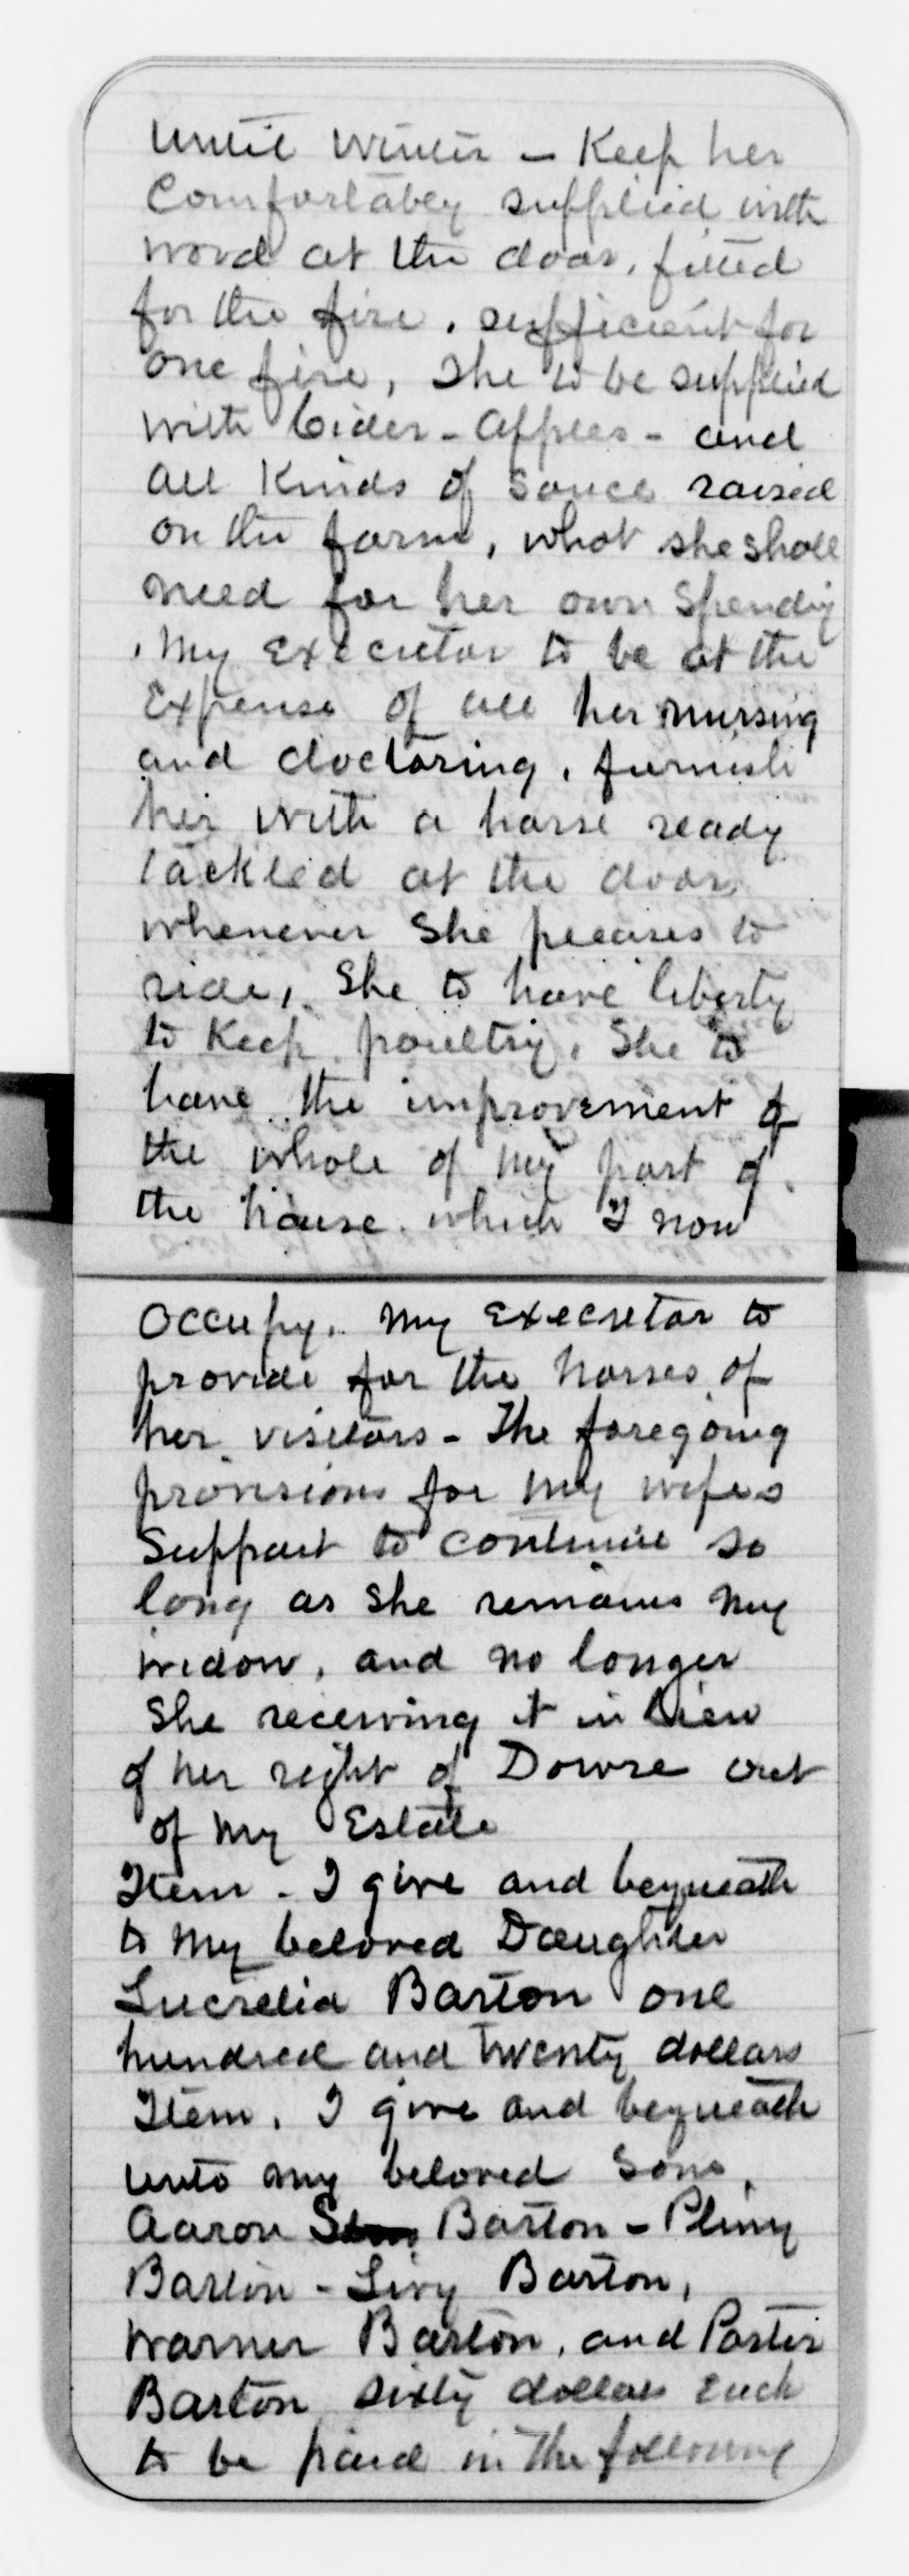 until winter – Keep her
Comfortabley supplied with
wood at the door, fitted
for the fire, sufficient for
one fire, She to be supplied
with Cider – Apples – and
all Kinds of Sauce raised
on the farm, what she shall
need for her own Spending
, My Executor to be at the
Expense of all her nursing
and doctoring, furnish
her with a horse ready
tackled at the door
whenever She pleases to
ride, She to have liberty
to Keep poultry, She to
have the improvement of
the whole of my part of
the house which I now
Occupy, My Executor to
provide for the horses of
her visitors – The foregoing
provisions for my wifes
Support to continue so
long as She remains my
widow, and no longer
She receiving it in Lieu
of her right of Dowre out
of my Estate
Item – I give and bequeath
to My beloved Daughter
Lucretia Barton one
hundred and twenty dollars
Item, I give and bequeath
unto my beloved Sons,
Aaron Barton – Pliny
Barton – Livy Barton,
Warner Barton, and Porter
Barton Sixty dollars Each
to be paid in the following